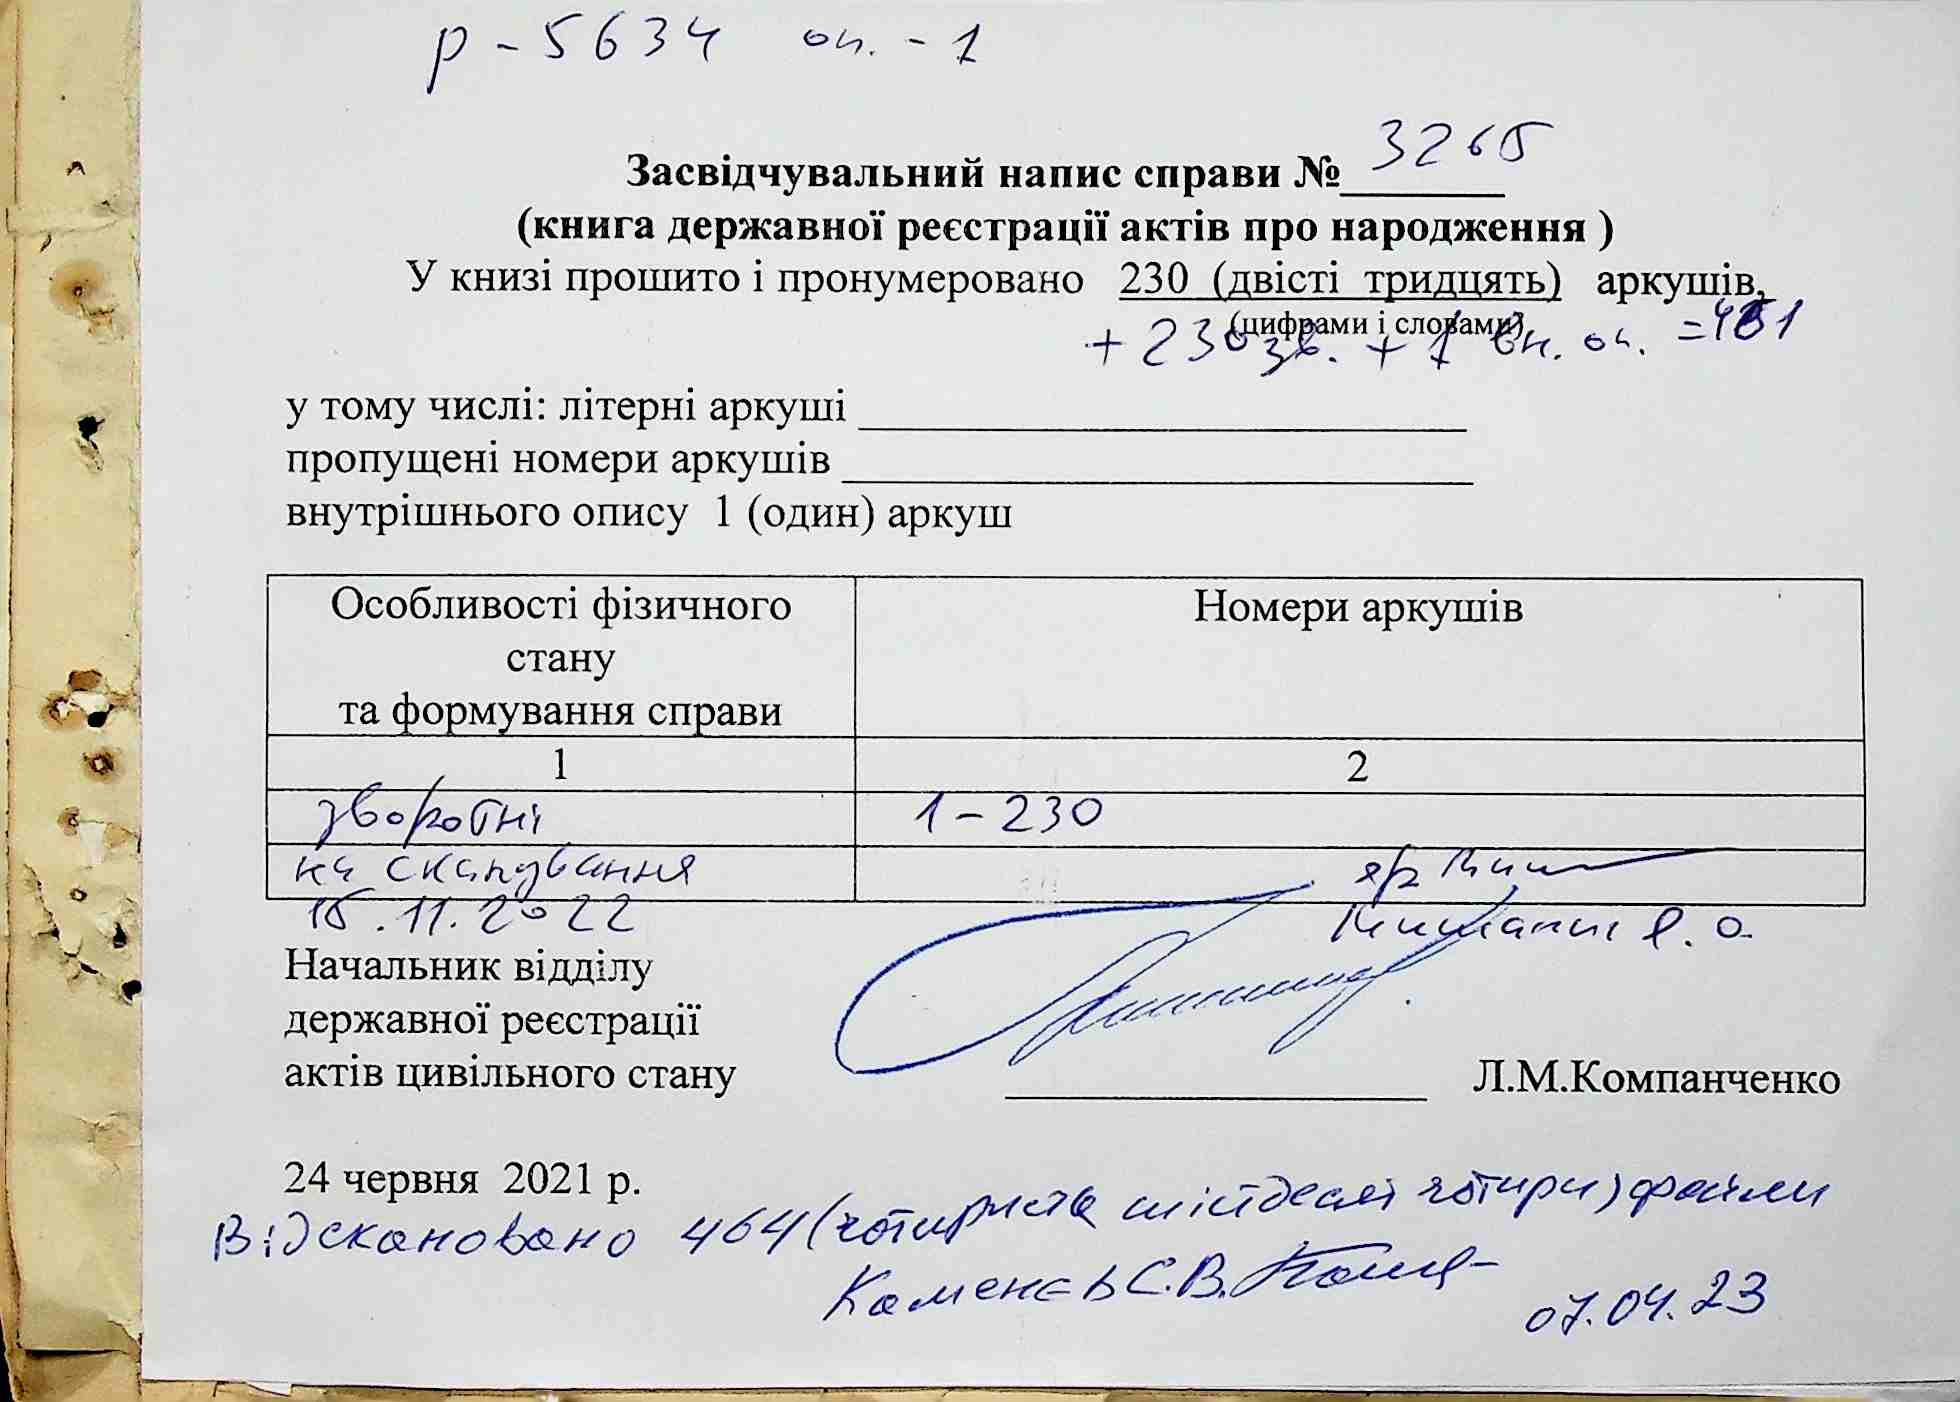 р - 5634 оп. - 1
Засвідчувальний напис справи № 3265
(книга державної реєстрації актів про народження )
У книзі прошито і пронумеровано 230 (двісті тридцять) аркушів,
(цифрами і словами)
+ 230 зв. + 1 вн. оп. =461
у тому числі: літерні аркуші
пропущені номери аркушів
внутрішнього опису 1 (один) аркуш
Особливості фізичного
стану
та формування справи
Номери аркушів
1 2
зворотні 1 - 230
на сканування
15.11.2022
Начальник відділу
державної реєстрації
актів цивільного стану Л.М.Компанченко
24 червня 2021 р.
Відскановано 464 (чотириста шістдесят чотири) файли
Каменєв С.В.
07.04.23